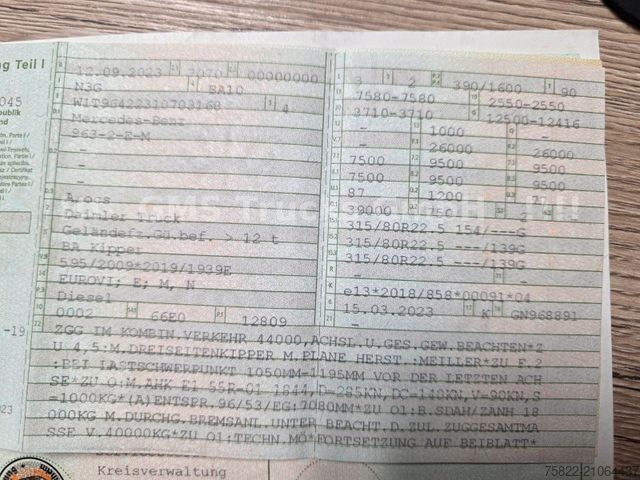 ng Teil I
12.09.2023 7070 00000000
N3G BA10
W1T96422310703168 4
Mercedes-Benz
963-2-E-M
-
-
-
Arocs
Daimler Truck
Geländefz.Gü.bef. > 12 t
BA Kipper
595/2009*2019/1939E
EUROVI; E; M, N
Diesel
0002 66E0 12809
3 2 390/1600 90
7580-7580 2550-2550
3710-3710 12500-12416
- 1000 -
- 26000 26000
7500 9500 9500
7500 9500 9500
87 1200 -
39000 750 2
315/80R22.5 154/---G
315/80R22.5 ---/139G
315/80R22.5 ---/139G
-
e13*2018/858*00091*04
15.03.2023 K GN968891
ZGG IM KOMBIN.VERKEHR 44000,ACHSL.U.GES.GEW.BEACHTEN*Z
U 4,5:M.DREISEITENKIPPER M.PLANE HERST.:MEILLER*ZU F.2
:BEI LASTSCHWERPUNKT 1050MM-1195MM VOR DER LETZTEN ACH
SE*ZU O:M.AHK E1 55R-01 1844,D=285KN,DC=140KN,V=90KN,S
=1000KG*(A)ENTSPR.96/53/EG:7080MM*ZU O1:B.SDAH/ZANH 18
000KG M.DURCHG.BREMSANL.UNTER BEACHT.D.ZUL.ZUGGESAMTMA
SSE V.40000KG*ZU O1:TECHN.MÖ*FORTSETZUNG AUF BEIBLATT*
Kreisverwaltung
75822-21064437